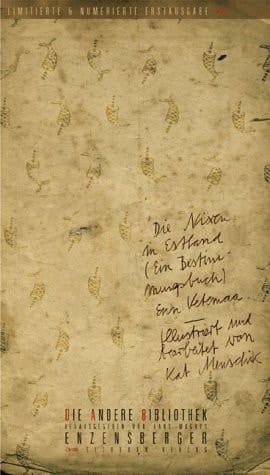 LIMITIERTE & NUMERIERTE ERSTAUSGABE
Die Nixen
in Estland
(Ein Bestim-
mungsbuch)
Enn Vetemaa
illustriert und
bearbeitet von
Kat Menschik
DIE ANDERE BIBLIOTHEK
HERAUSGEGEBEN VON HANS MAGNUS
ENZENSBERGER
EICHBORN VERLAG